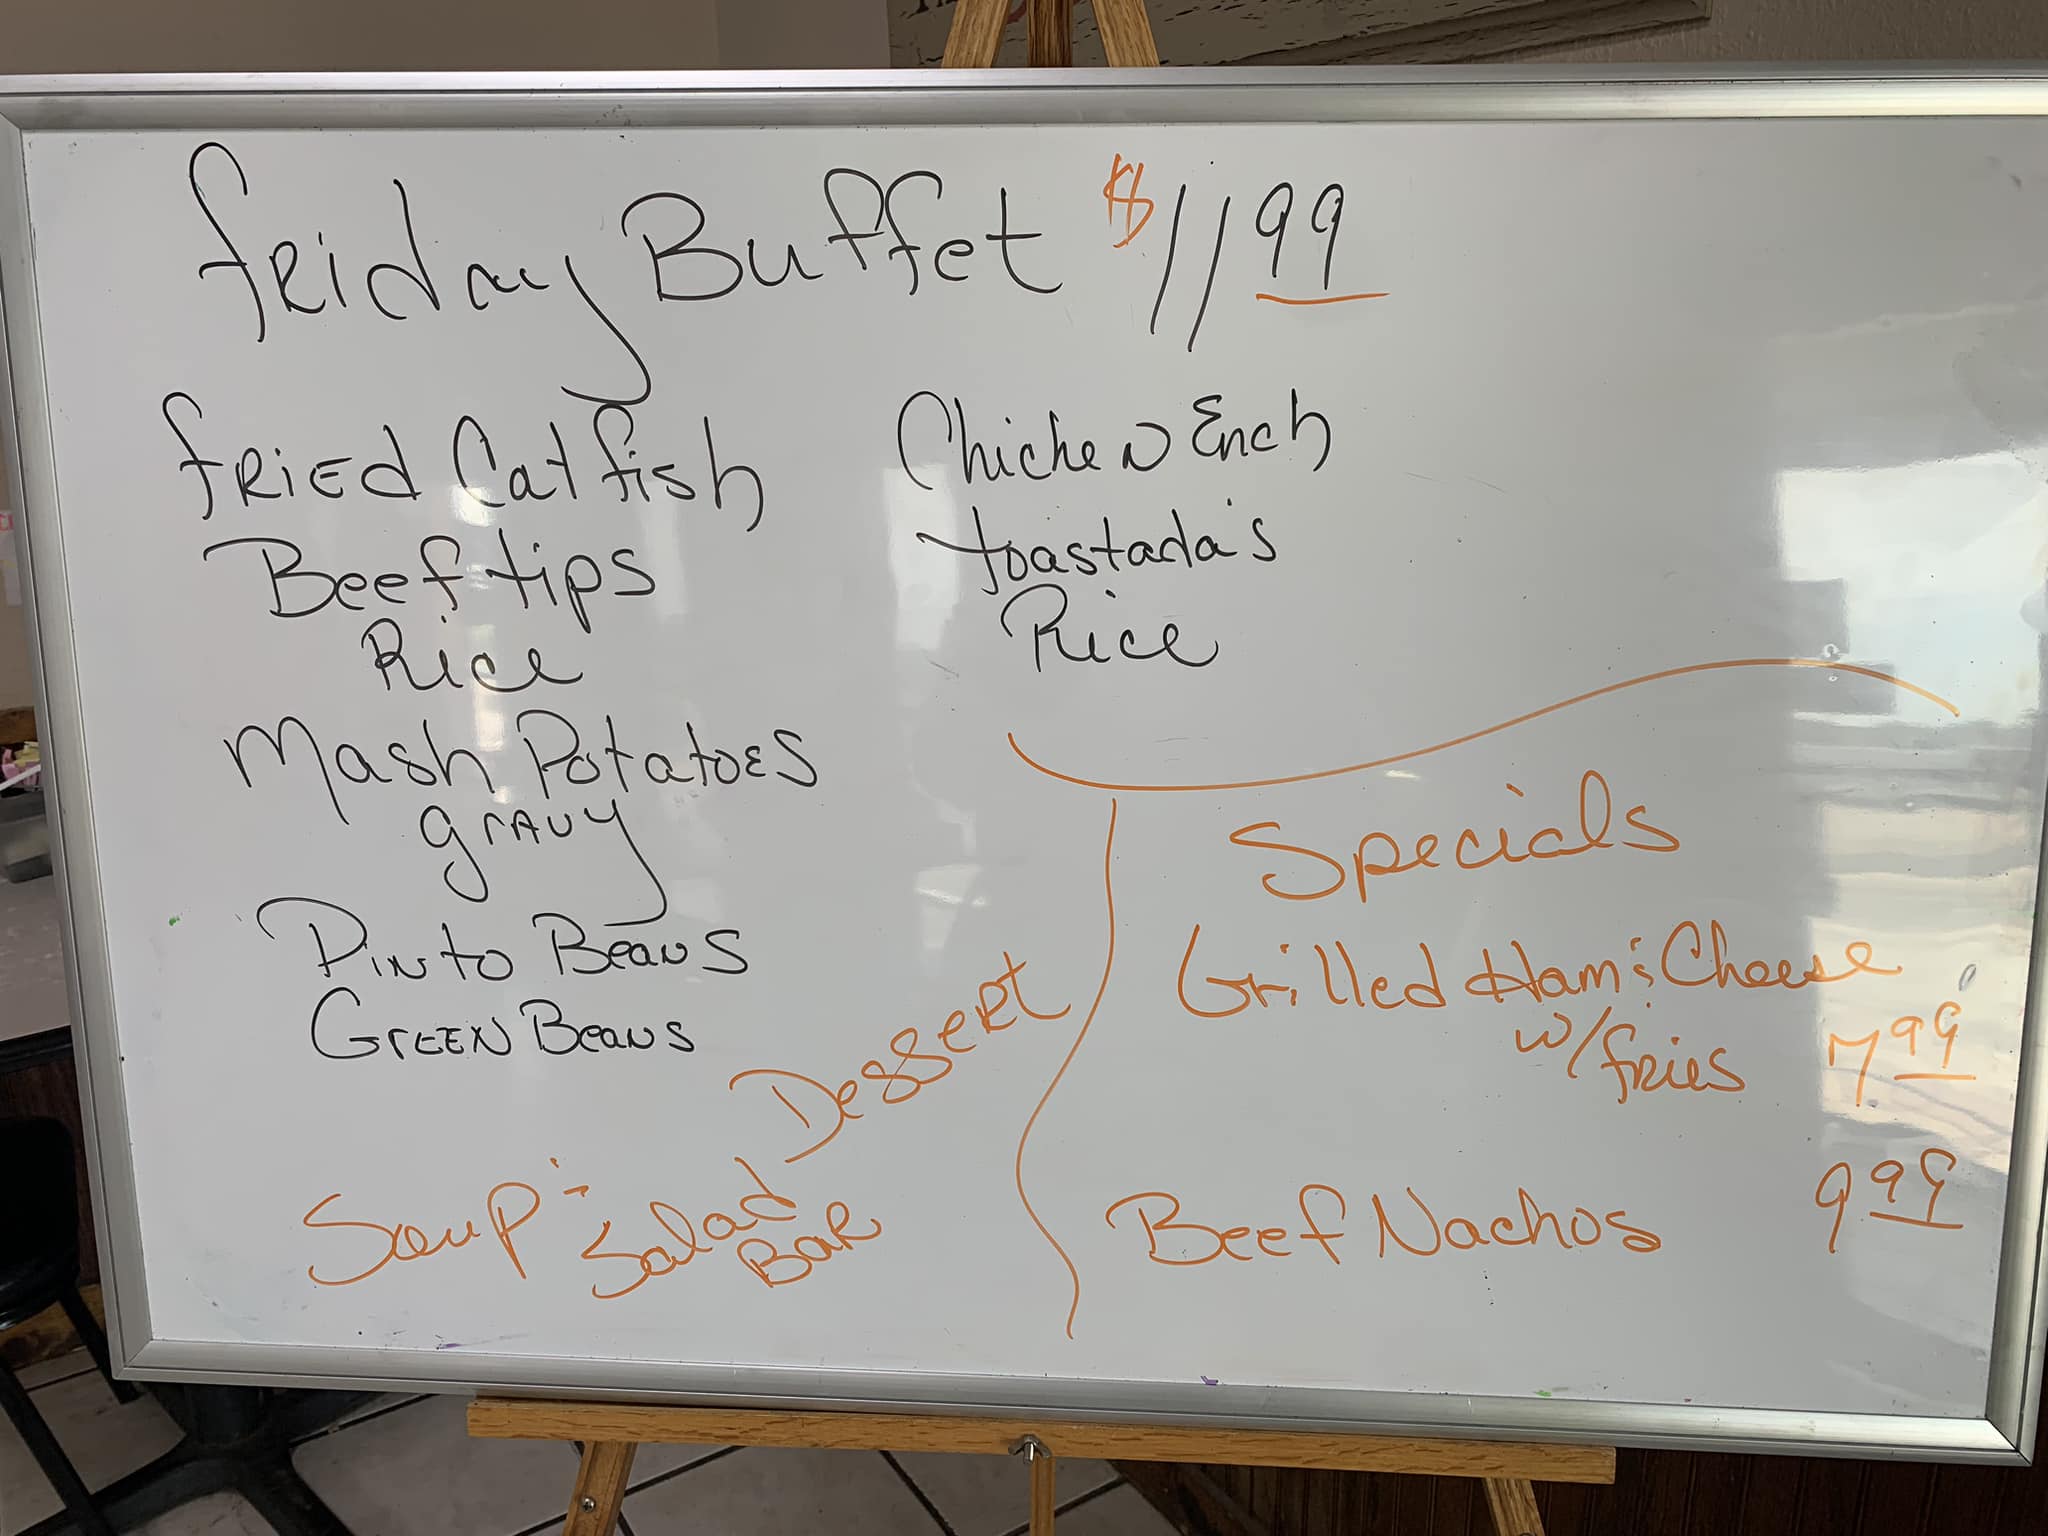 Friday Buffet $11 99
Fried Catfish
Beef tips
Rice
Mash Potatoes
gravy
Pinto Beans
Green Beans
Chicken Ench
toastada's
Rice
Dessert
Soup & Salad
Bar
Specials
Grilled Ham & Cheese
w/fries 7 99
Beef Nachos 9 99